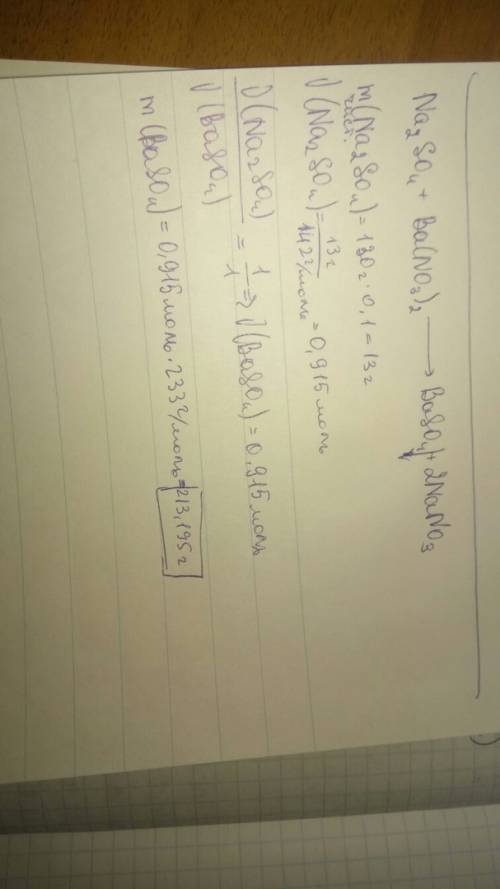 Na₂SO₄ + Ba(NO₃)₂ ⟶ BaSO₄↓ + 2NaNO₃
m(Na₂SO₄) = 130г · 0,1 = 13г
част.
ν(Na₂SO₄) = 13г / 142г/моль = 0,915 моль
ν(Na₂SO₄) / ν(BaSO₄) = 1/1 ⇒ ν(BaSO₄) = 0,915 моль
m(BaSO₄) = 0,915 моль · 233г/моль = 213,195г